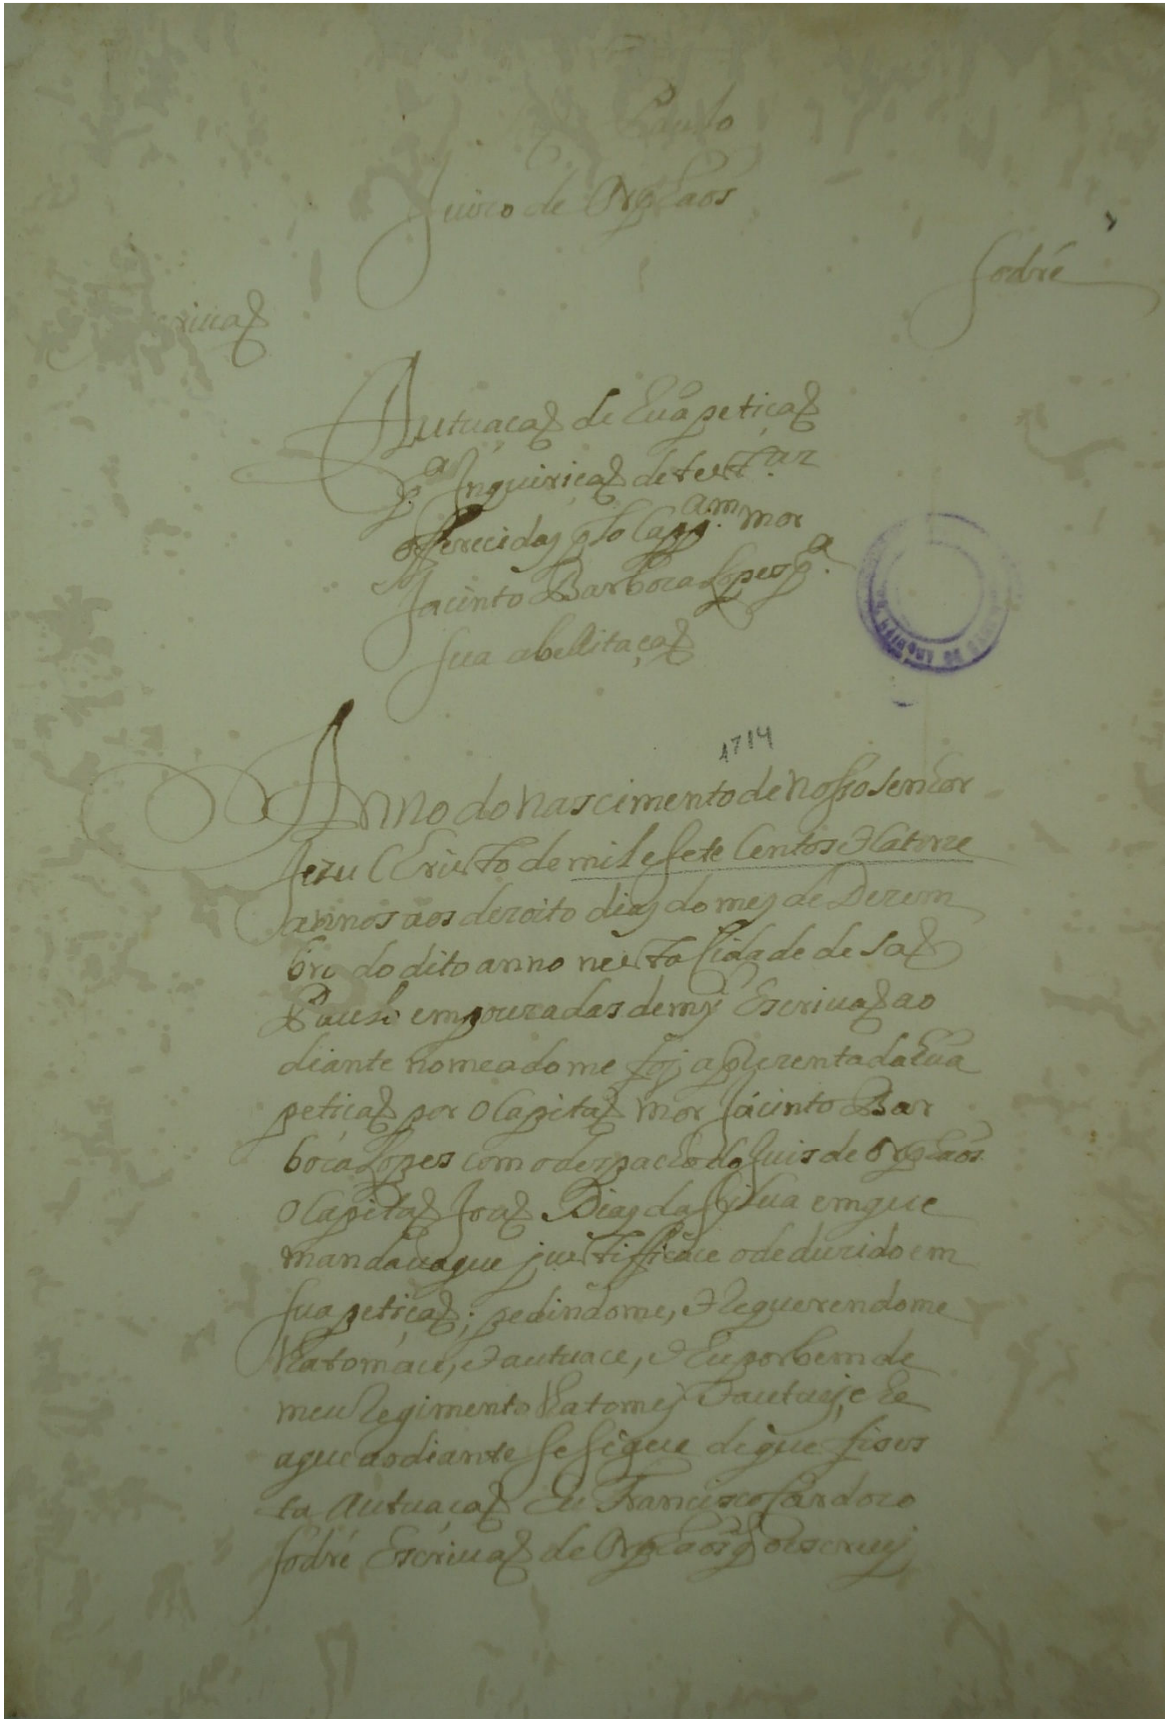 Paulo
Juizo de Orphaos
Sodré
Autuaçaõ de hũa petiçaõ
p.ª Inquiriçaõ de test.as
offerecidas plo Capp.am mor
Jacinto Barboca Lopes p.ª
sua abelitaçaõ
1714
Anno do Nascimento de Nosso Senhor
Jezu Christo de mil e sete Centos e Catorze
annos aos dezoito dias do mes de Dezem
bro do dito anno nesta Cidade de Saõ
Paulo em pouzadas de my Escrivaõ ao
diante nomeado me foj aprezentada hũa
petiçaõ por o Capitaõ mor Jacinto Bar
boca Lopes com o despacho do Juis de Orphaõs
o Capitaõ Joaõ Dias da Silva em que
mandava que justifficace o deduzido em
sua petiçaõ; pedindome, e Requerendome
lha tomáce, e autuace, e Eu por bem de
meu Regimento lha tomej e autuej, e he
a que ao diante se Segue de que fis es
ta Autuaçaõ Eu Francisco Cardozo
Sodré Escrivaõ de Orphaõs q̃ o escrevj